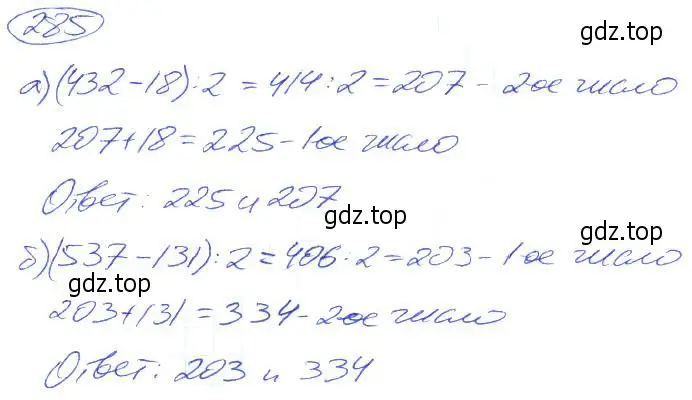 285
gdz.top
а) (432 - 18) : 2 = 414 : 2 = 207 - 2ое число
207 + 18 = 225 - 1ое число
gdz.top
Ответ: 225 и 207
gdz.top
б) (537 - 131) : 2 = 406 : 2 = 203 - 1ое число
gdz.top
gdz.top
203 + 131 = 334 - 2ое число
Ответ: 203 и 334
gdz.top